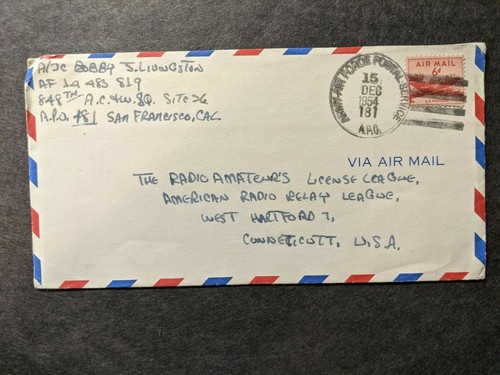 A/3C BOBBY J. LIVINGSTON
AF 14 483 819
848TH A.C.&W. SQ. SITE 26
A.P.O. 181 SAN FRANCISCO, CAL.
ARMY-AIR FORCE POSTAL SERVICE
15
DEC
1954
181
A.P.O.
AIR MAIL
6¢
VIA AIR MAIL
THE RADIO AMATEUR'S LICENSE LEAGUE,
AMERICAN RADIO RELAY LEAGUE,
WEST HARTFORD 7,
CONNETICUTT, U.S.A.